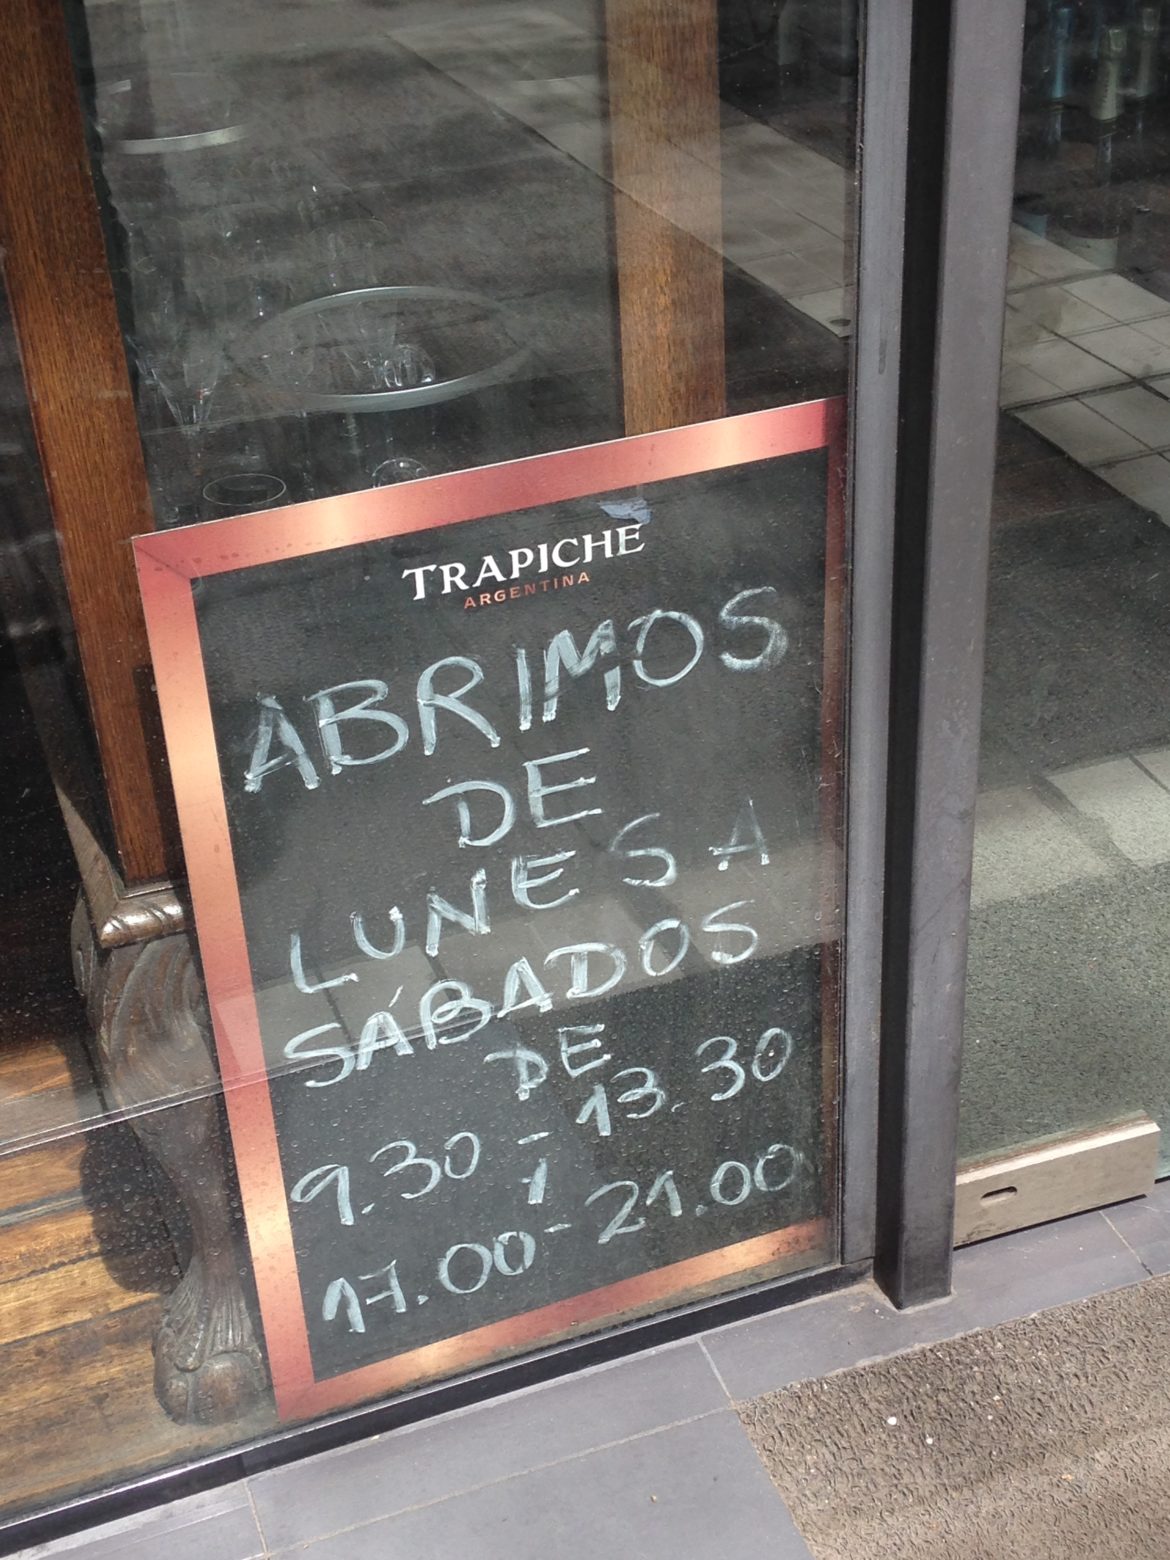 TRAPICHE
ARGENTINA
ABRIMOS
DE
LUNES A
SÁBADOS
DE
9.30 - 13.30
Y
17.00 - 21.00